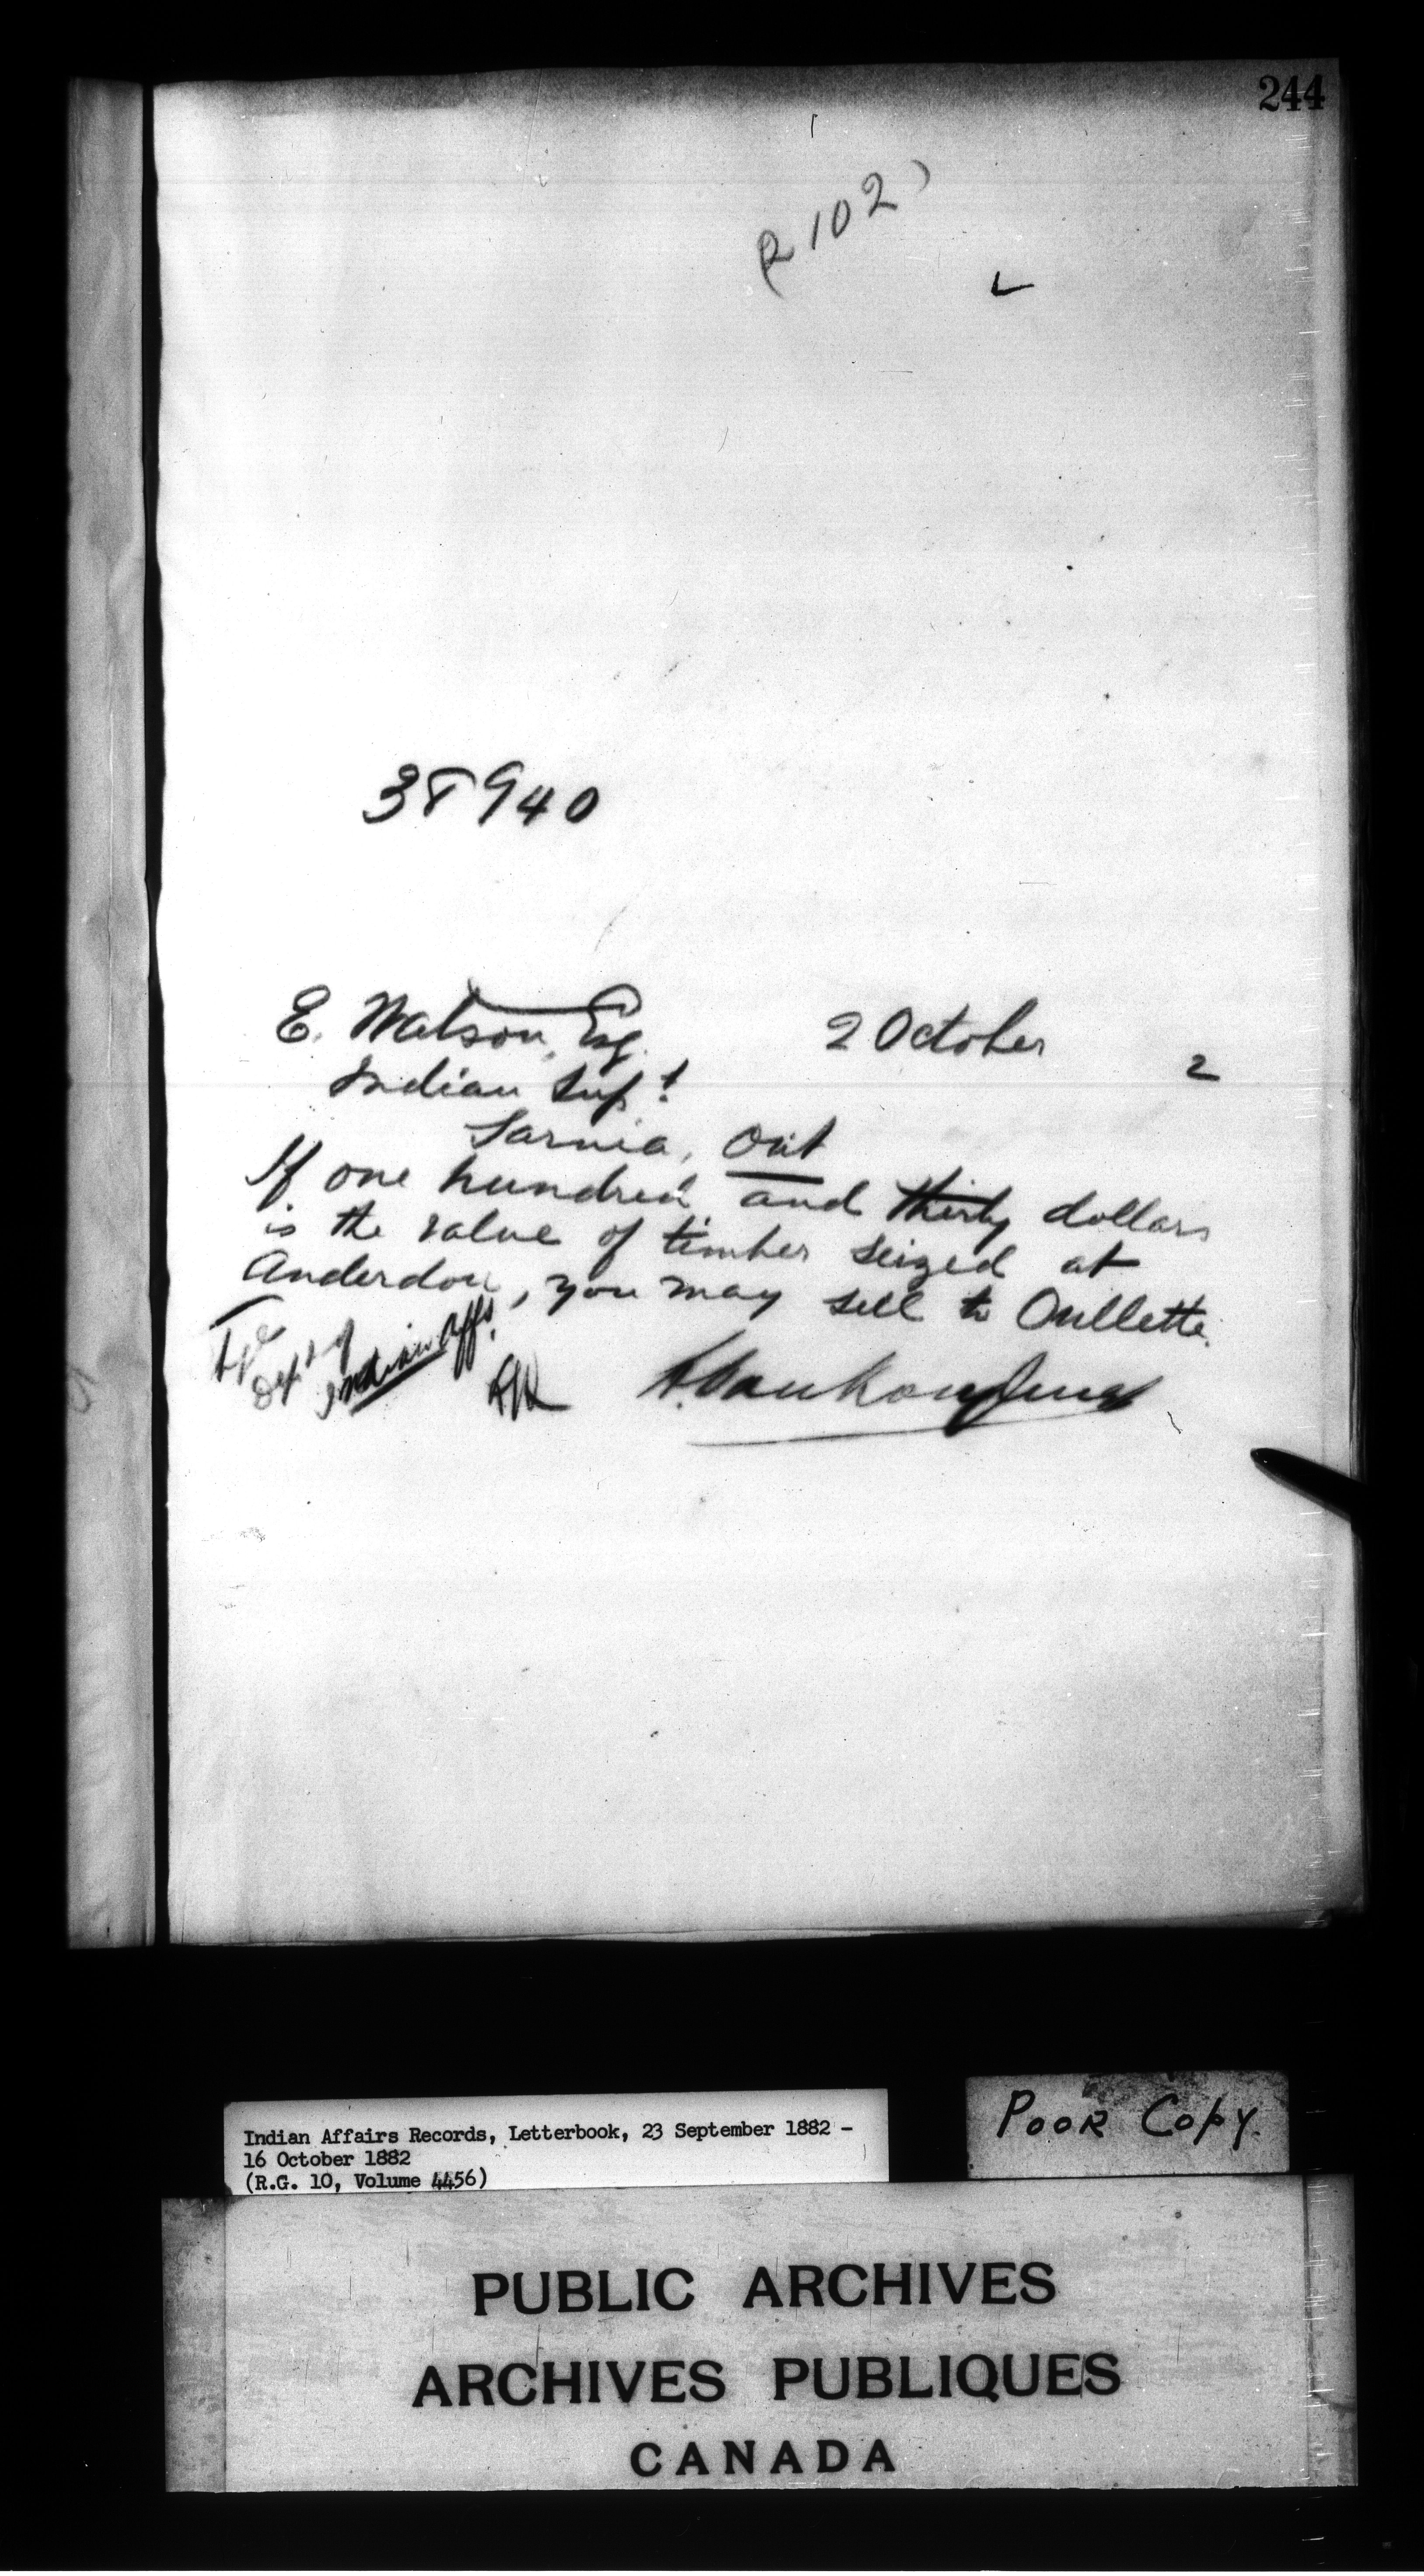 244
R 102
38940
E. Watson, Esq. 2 October 2
Indian Supt
Sarnia, Ont
If one hundred and thirty dollars
is the value of timber seized at
Anderdon, you may sell to Oullette.
Dept of
Indian Affs.
L. Vankoughnet
Indian Affairs Records, Letterbook, 23 September 1882 -
16 October 1882
(R.G. 10, Volume 4456)
POOR COPY.
PUBLIC ARCHIVES
ARCHIVES PUBLIQUES
CANADA